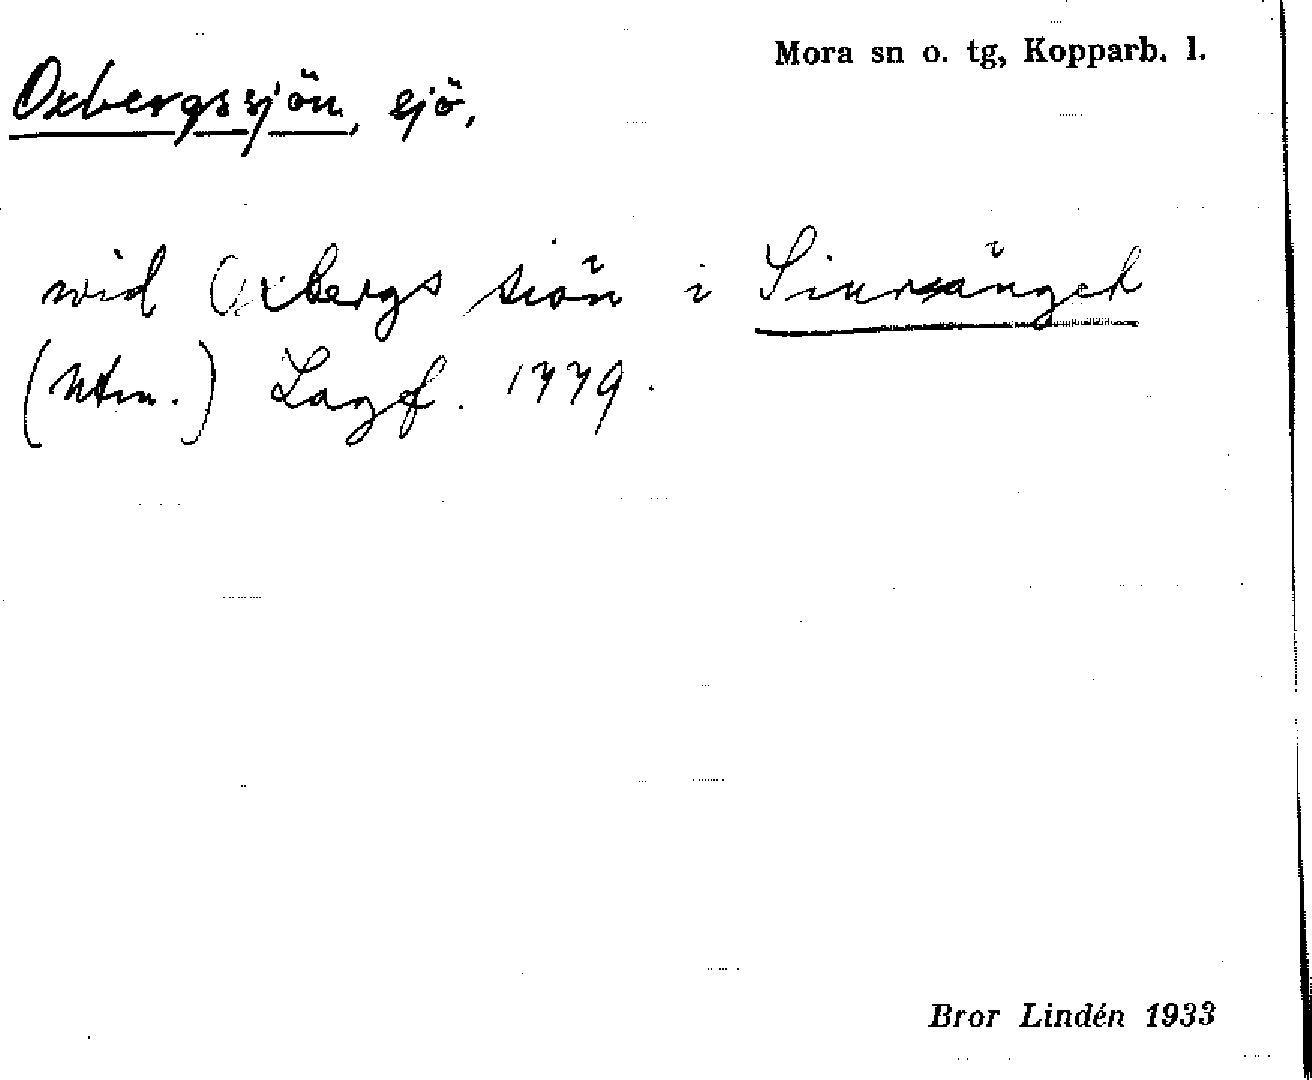 Mora sn o. tg, Kopparb. l.
Oxbergssjön, sjö,
wid Oxbergs siön i
(Utm.) Lagf. 1779.
Bror Lindén 1933